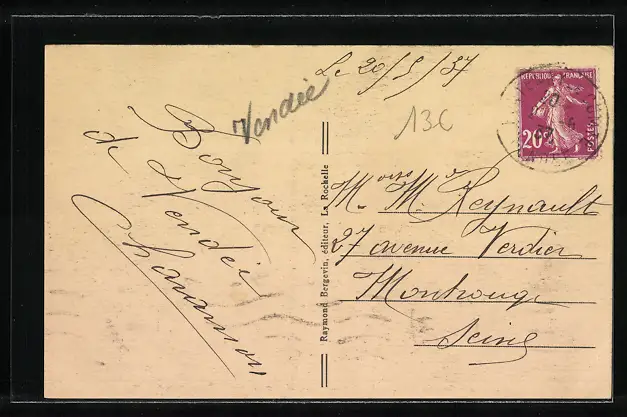 Le 20/5/37
Vendée
13€
REPUBLIQUE FRANÇAISE
20c
POSTES
Bonjour
de Vendée
Chavanson
Raymond Bergevin, éditeur, La Rochelle
M. M. Reynault
27 avenue Verdier
Montrouge
Seine